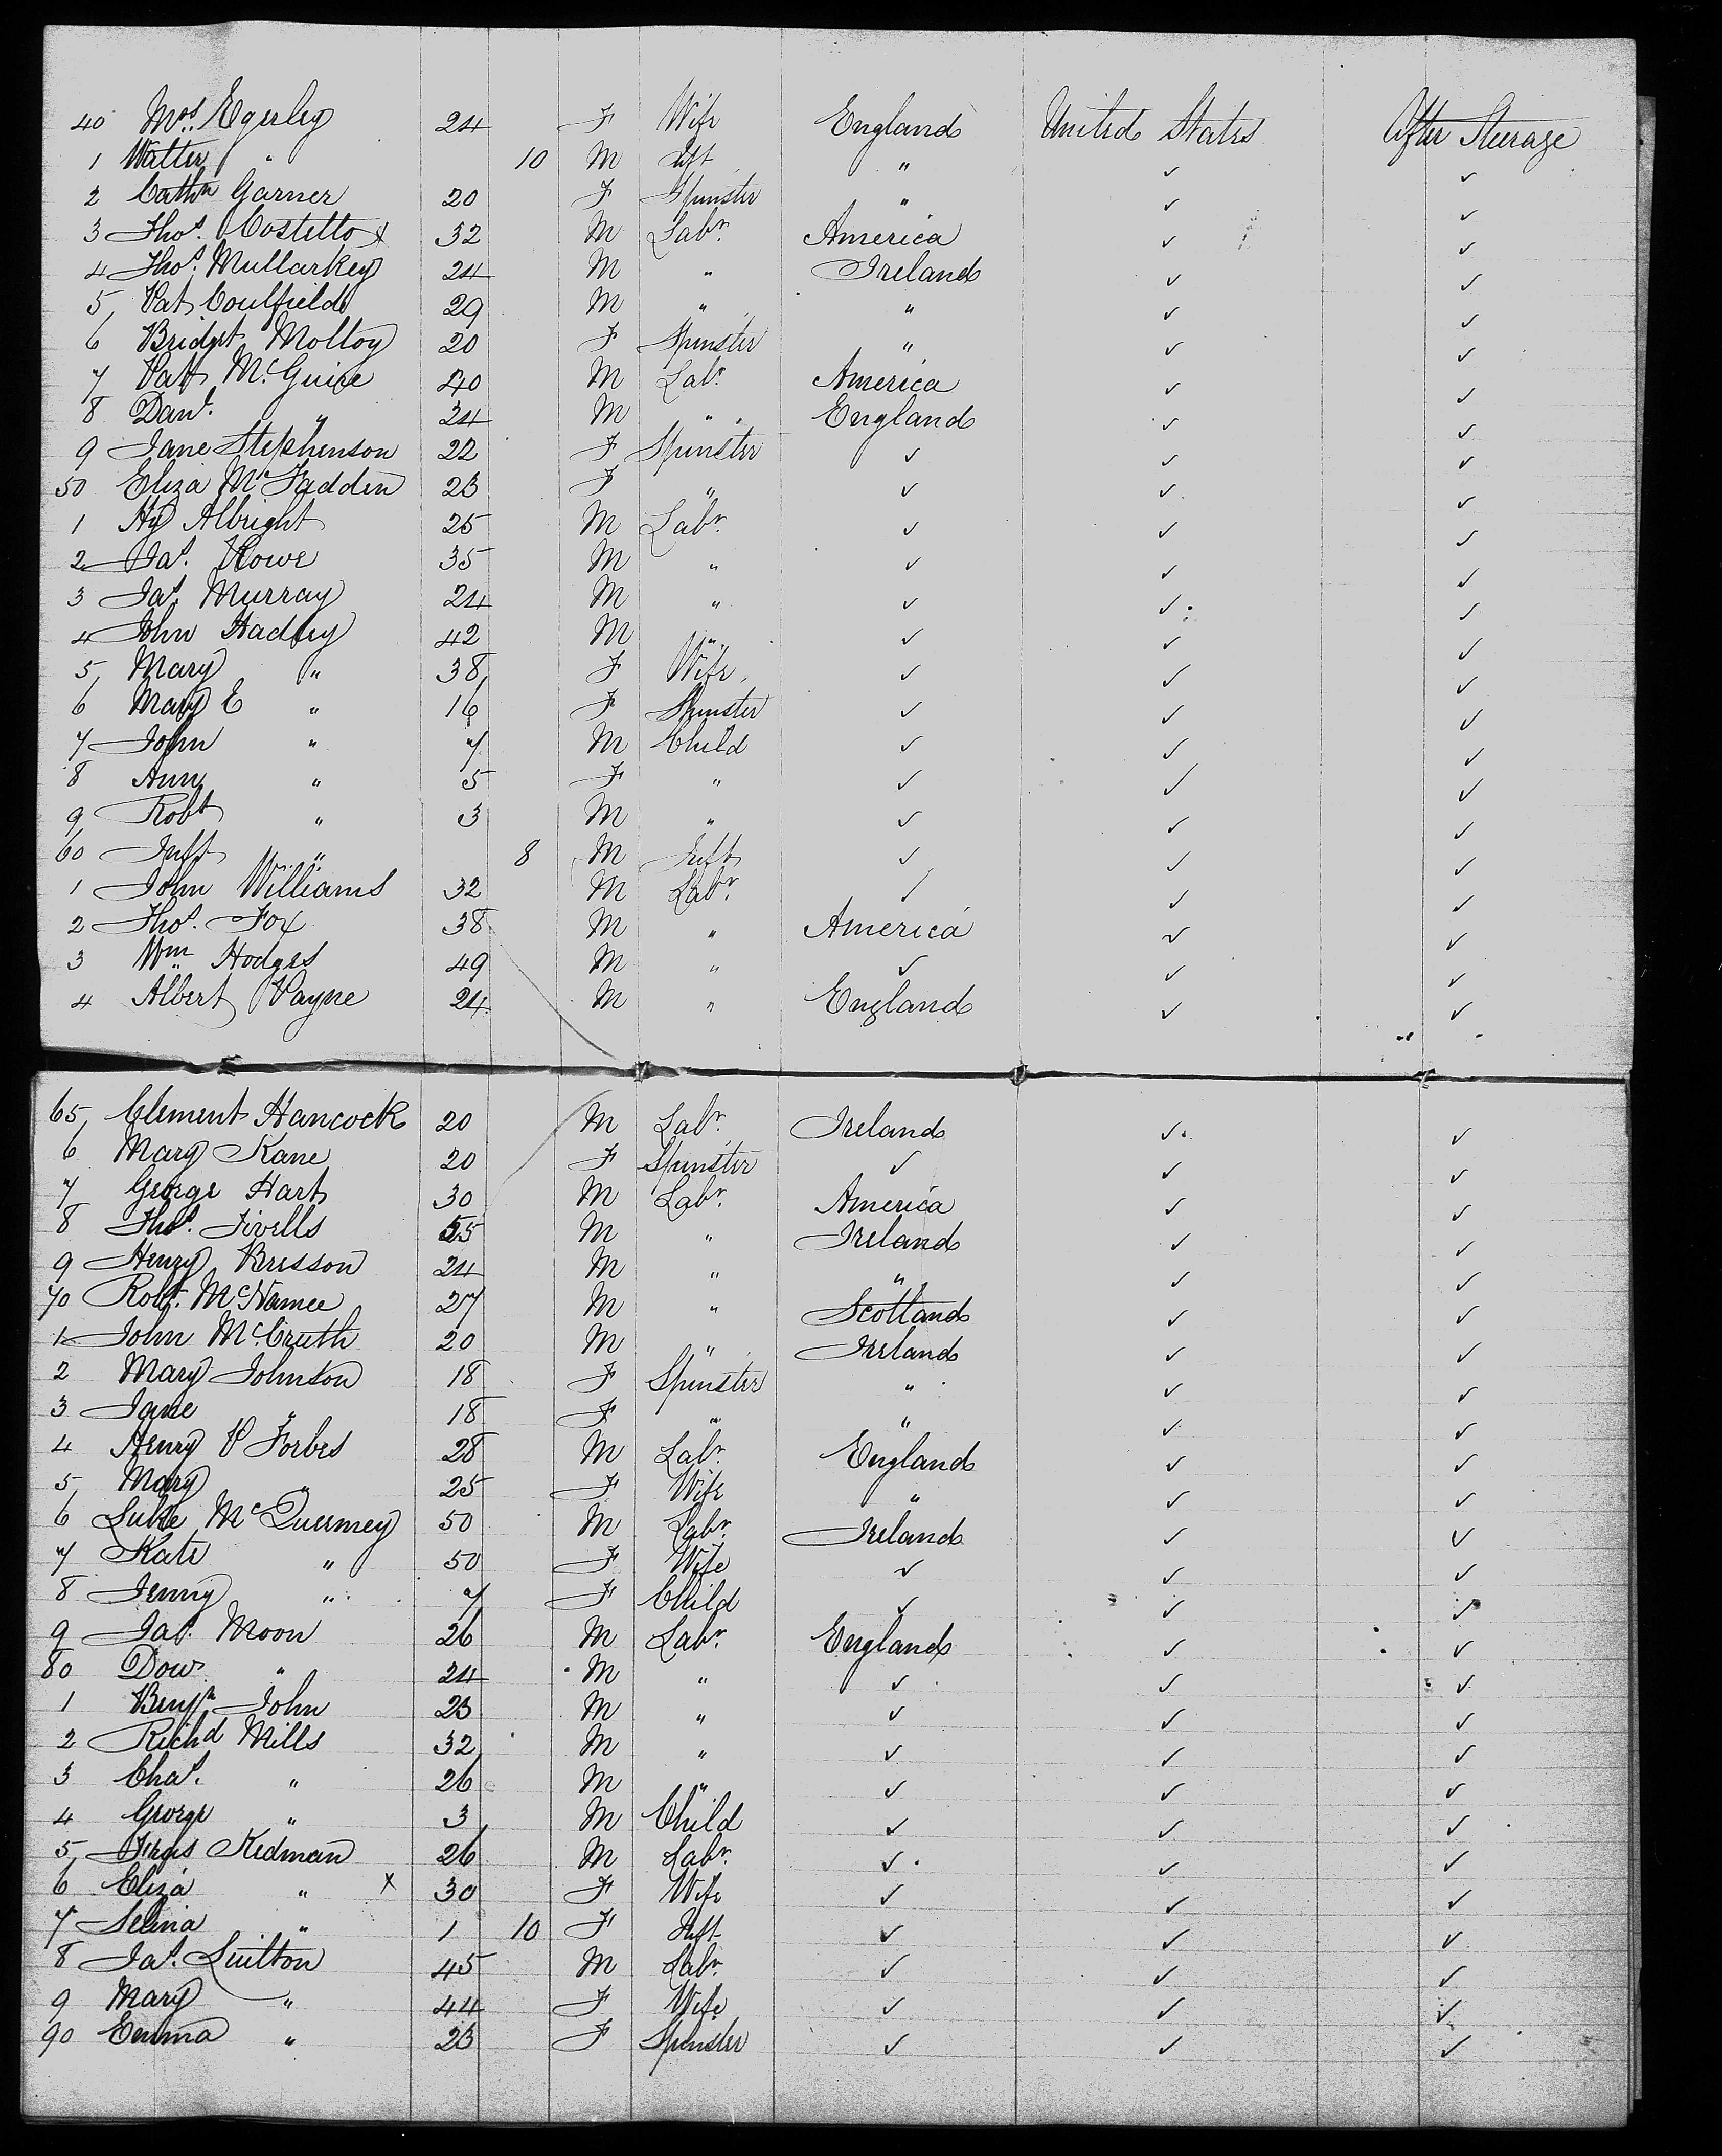 40 Mrs. Egerley 24 F Wife England United States After Steerage
1 Walter " 10 M Inft " ✓ ✓
2 Cathn Garner 20 F Spinster " ✓ ✓
3 Thos. Costello x 32 M Labr. America ✓ ✓
4 Thos. Mullarkey 24 M " Ireland ✓ ✓
5 Pat Coulfield 29 M " " ✓ ✓
6 Bridget Molloy 20 F Spinster " ✓ ✓
7 Patt McGuire 40 M Labr. America ✓ ✓
8 Danl. " 34 M " England ✓ ✓
9 Jane Stephenson 22 F Spinster ✓ ✓ ✓
50 Eliza McFadden 23 F " ✓ ✓ ✓
1 Hy Albright 25 M Labr. ✓ ✓ ✓
2 Jas. Howe 35 M " ✓ ✓ ✓
3 Jas. Murray 24 M " ✓ ✓ ✓
4 John Hadley 42 M " ✓ ✓ ✓
5 Mary " 38 F Wife ✓ ✓ ✓
6 Mary E " 16 F Spinster ✓ ✓ ✓
7 John " 7 M Child ✓ ✓ ✓
8 Ann " 5 F " ✓ ✓ ✓
9 Robt " 3 M " ✓ ✓ ✓
60 Inft " 8 M Inft ✓ ✓ ✓
1 John Williams 32 M Labr. ✓ ✓ ✓
2 Thos. Fox 38 M " America ✓ ✓
3 Wm Hodges 49 M " ✓ ✓ ✓
4 Albert Payne 24 M " England ✓ ✓
65 Clement Hancock 20 M Labr. Ireland ✓ ✓
6 Mary Kane 20 F Spinster ✓ ✓ ✓
7 George Hart 30 M Labr. America ✓ ✓
8 Thos. 55 M " Ireland ✓ ✓
9 Henry Bresson 24 M " " ✓ ✓
70 Robt. McNamee 27 M " Scotland ✓ ✓
1 John McCruth 20 M " Ireland ✓ ✓
2 Mary Johnson 18 F Spinster " ✓ ✓
3 Jane " 18 F " " ✓ ✓
4 Henry P Forbes 28 M Labr. England ✓ ✓
5 Mary " 25 F Wife " ✓ ✓
6 Luke 50 M Labr. Ireland ✓ ✓
7 Kate " 50 F Wife ✓ ✓ ✓
8 Jenny " 7 F Child ✓ ✓ ✓
9 Jas. Moon 26 M Labr. England ✓ ✓
80 " 24 M " ✓ ✓ ✓
1 Benjn John 23 M " ✓ ✓ ✓
2 Richd Mills 32 M " ✓ ✓ ✓
3 Chas. " 26 M " ✓ ✓ ✓
4 George " 3 M Child ✓ ✓ ✓
5 Kedman 26 M Labr. ✓ ✓ ✓
6 Eliza " x 30 F Wife ✓ ✓ ✓
7 Selina " 1 10 F Inft ✓ ✓ ✓
8 Jas. 45 M Labr. ✓ ✓ ✓
9 Mary " 44 F Wife ✓ ✓ ✓
90 Emma " 23 F Spinster ✓ ✓ ✓